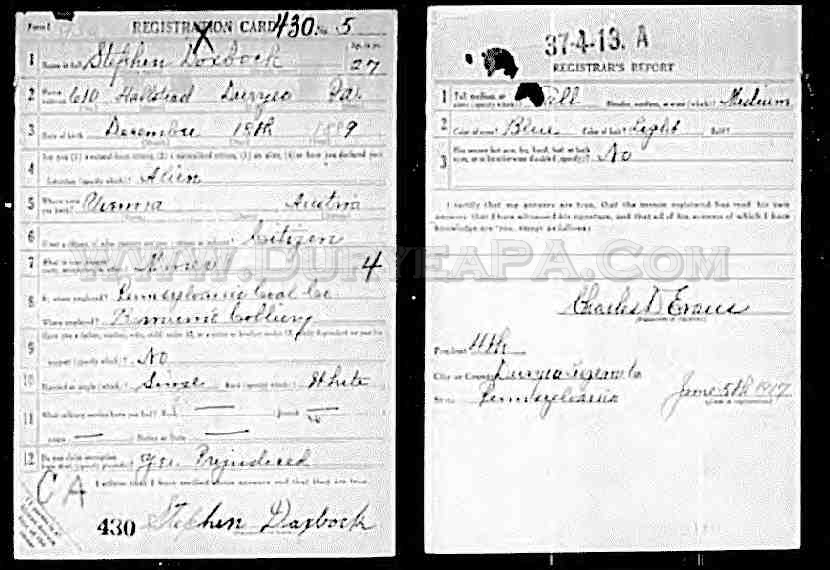 Form 1 REGISTRATION CARD 430 No. 5
1 Name in full Stephen Daxbock Age, in yrs. 27
2 Home address 610 Hallstead Duryea Pa.
3 Date of birth December 19th 1889
4 Are you (1) a natural-born citizen, (2) a naturalized citizen, (3) an alien, (4) or have you declared your
intention (specify which)? Alien
5 Where were you born? Vienna Austria
6 If not a citizen, of what country are you a citizen or subject? Citizen
7 What is your present trade, occupation, or office? Miner 4
8 By whom employed? Pennsylvania Coal Co.
Where employed? Colliery
9 Have you a father, mother, wife, child under 12, or a sister or brother under 12, solely dependent on you for
support (specify which)? No
10 Married or single (which)? Race (specify which)? White
11 What military service have you had? Rank — branch —
years — Nation or State —
12 Do you claim exemption from draft (specify grounds)? Yes. Prejudiced
I affirm that I have verified above answers and that they are true.
CA
430 Stephen Daxbock
37-4-13. A
REGISTRAR'S REPORT
1 Tall, medium, or short (specify which)? Tall Slender, medium, or stout (which)? Medium
2 Color of eyes? Blue Color of hair? Light Bald?
3 Has person lost arm, leg, hand, foot, or both eyes, or is he otherwise disabled (specify)? No
I certify that my answers are true, that the person registered has read his own
answers, that I have witnessed his signature, and that all of his answers of which I have
knowledge are true, except as follows:
WWW.DURYEAPA.COM
Charles D Evans
(Signature of registrar)
Precinct 11th
City or County Duryea
State Pennsylvania June 5th 1917
(Date of registration)